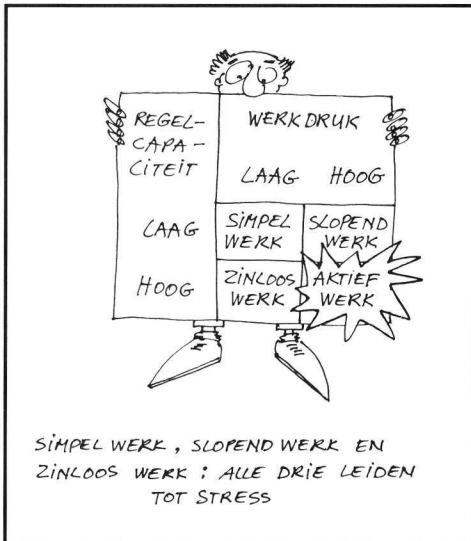 REGEL-
CAPA-
CITEIT
WERKDRUK
LAAG HOOG
LAAG
SIMPEL
WERK
SLOPEND
WERK
HOOG
ZINLOOS
WERK
AKTIEF
WERK
SIMPEL WERK, SLOPEND WERK EN
ZINLOOS WERK: ALLE DRIE LEIDEN
TOT STRESS